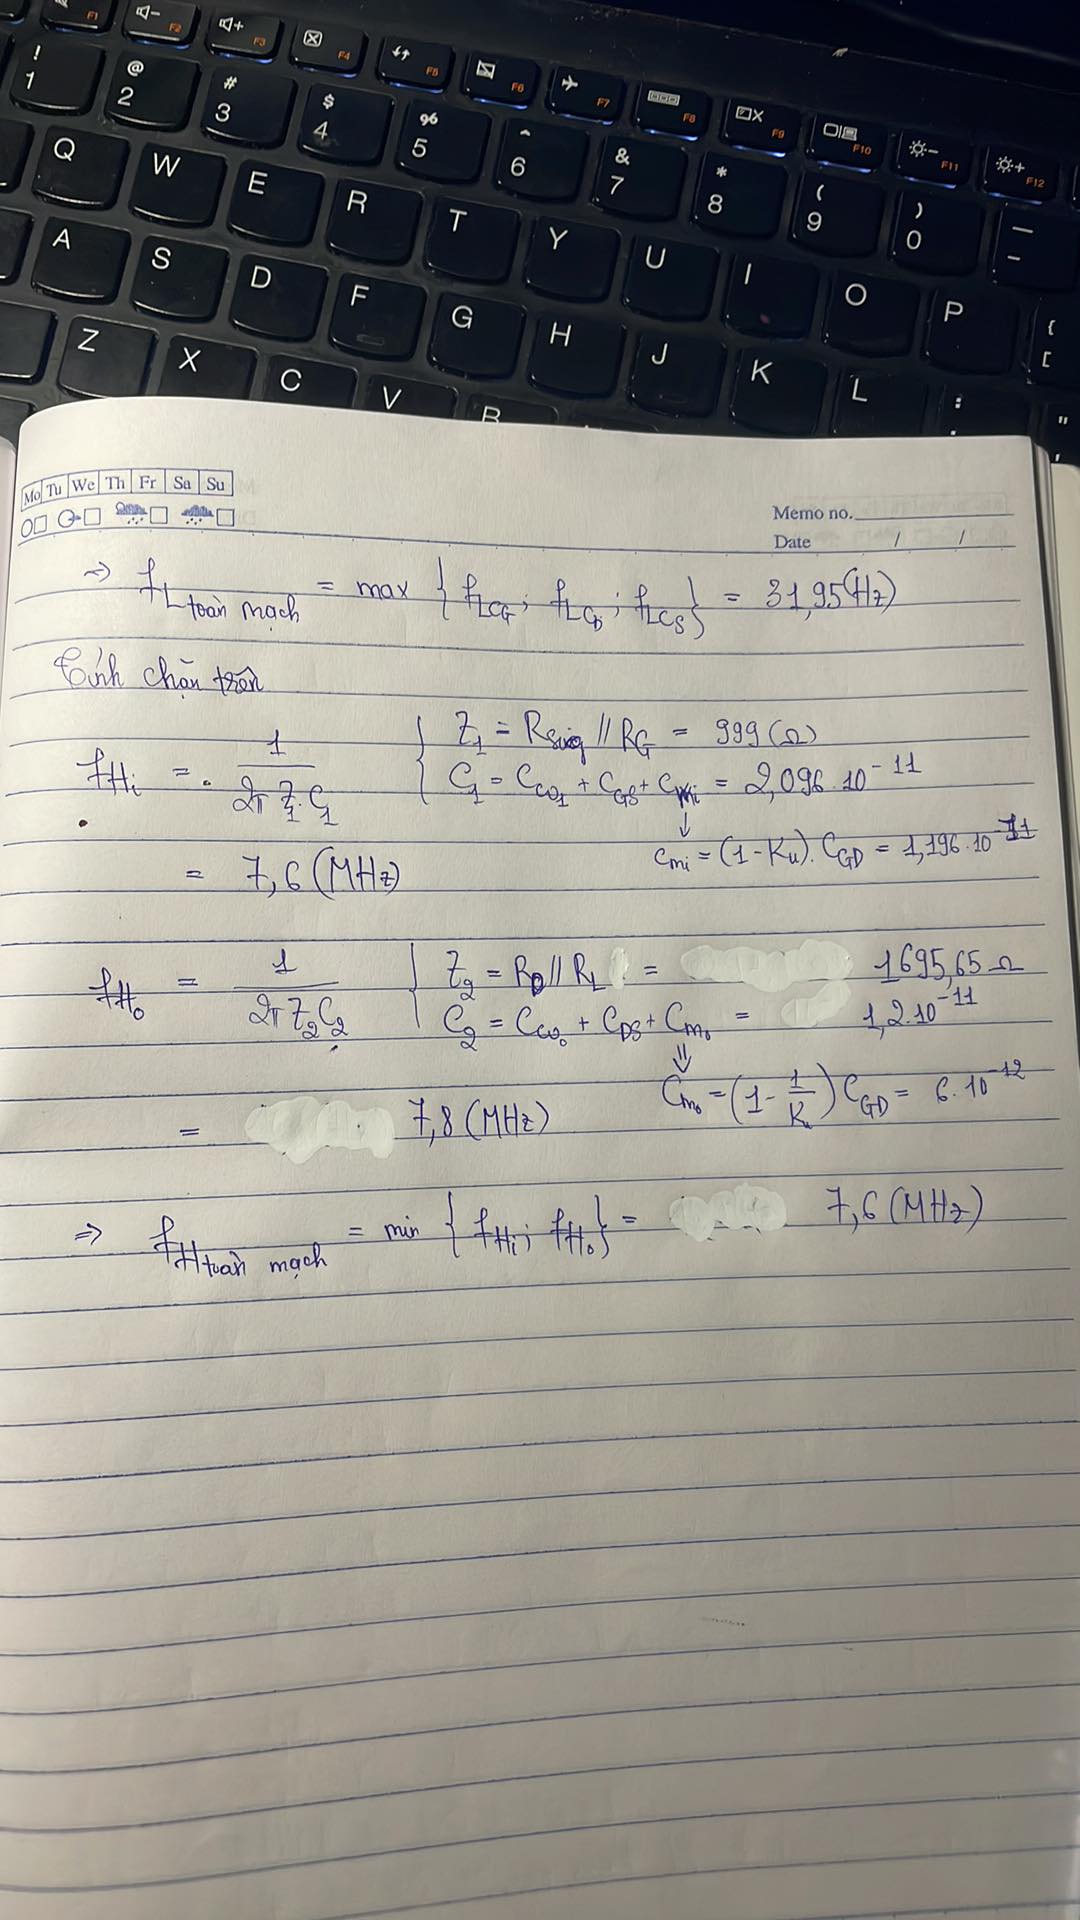 F1 F2 F3 F4 F5 F6 F7 F8 F9 F10 F11 F12
! 1 @ 2 # 3 $ 4 % 5 ^ 6 & 7 * 8 ( 9 ) 0 — -
Q W E R T Y U I O P { [
A S D F G H J K L : ; "
Z X C V B
Mo Tu We Th Fr Sa Su
Memo no.
Date / /
=> f_L toàn mạch = max { f_LCG ; f_LCD ; f_LCS } = 31,95 (Hz)
Tính chặn trên
f_Hi = 1 / (2π Z_1 . C_1) { Z_1 = R_sig // R_G = 999 (Ω)
C_1 = C_W1 + C_GS + C_Mi = 2,096.10^-11
↓
C_mi = (1 - K_u). C_GD = 1,196.10^-11
= 7,6 (MHz)
f_Ho = 1 / (2π Z_2 C_2) { Z_2 = R_D // R_L = 1695,65 Ω
C_2 = C_Wo + C_DS + C_mo = 1,2.10^-11
⇓
C_mo = (1 - 1/K_u) C_GD = 6.10^-12
= 7,8 (MHz)
=> f_H toàn mạch = min { f_Hi ; f_Ho } = 7,6 (MHz)